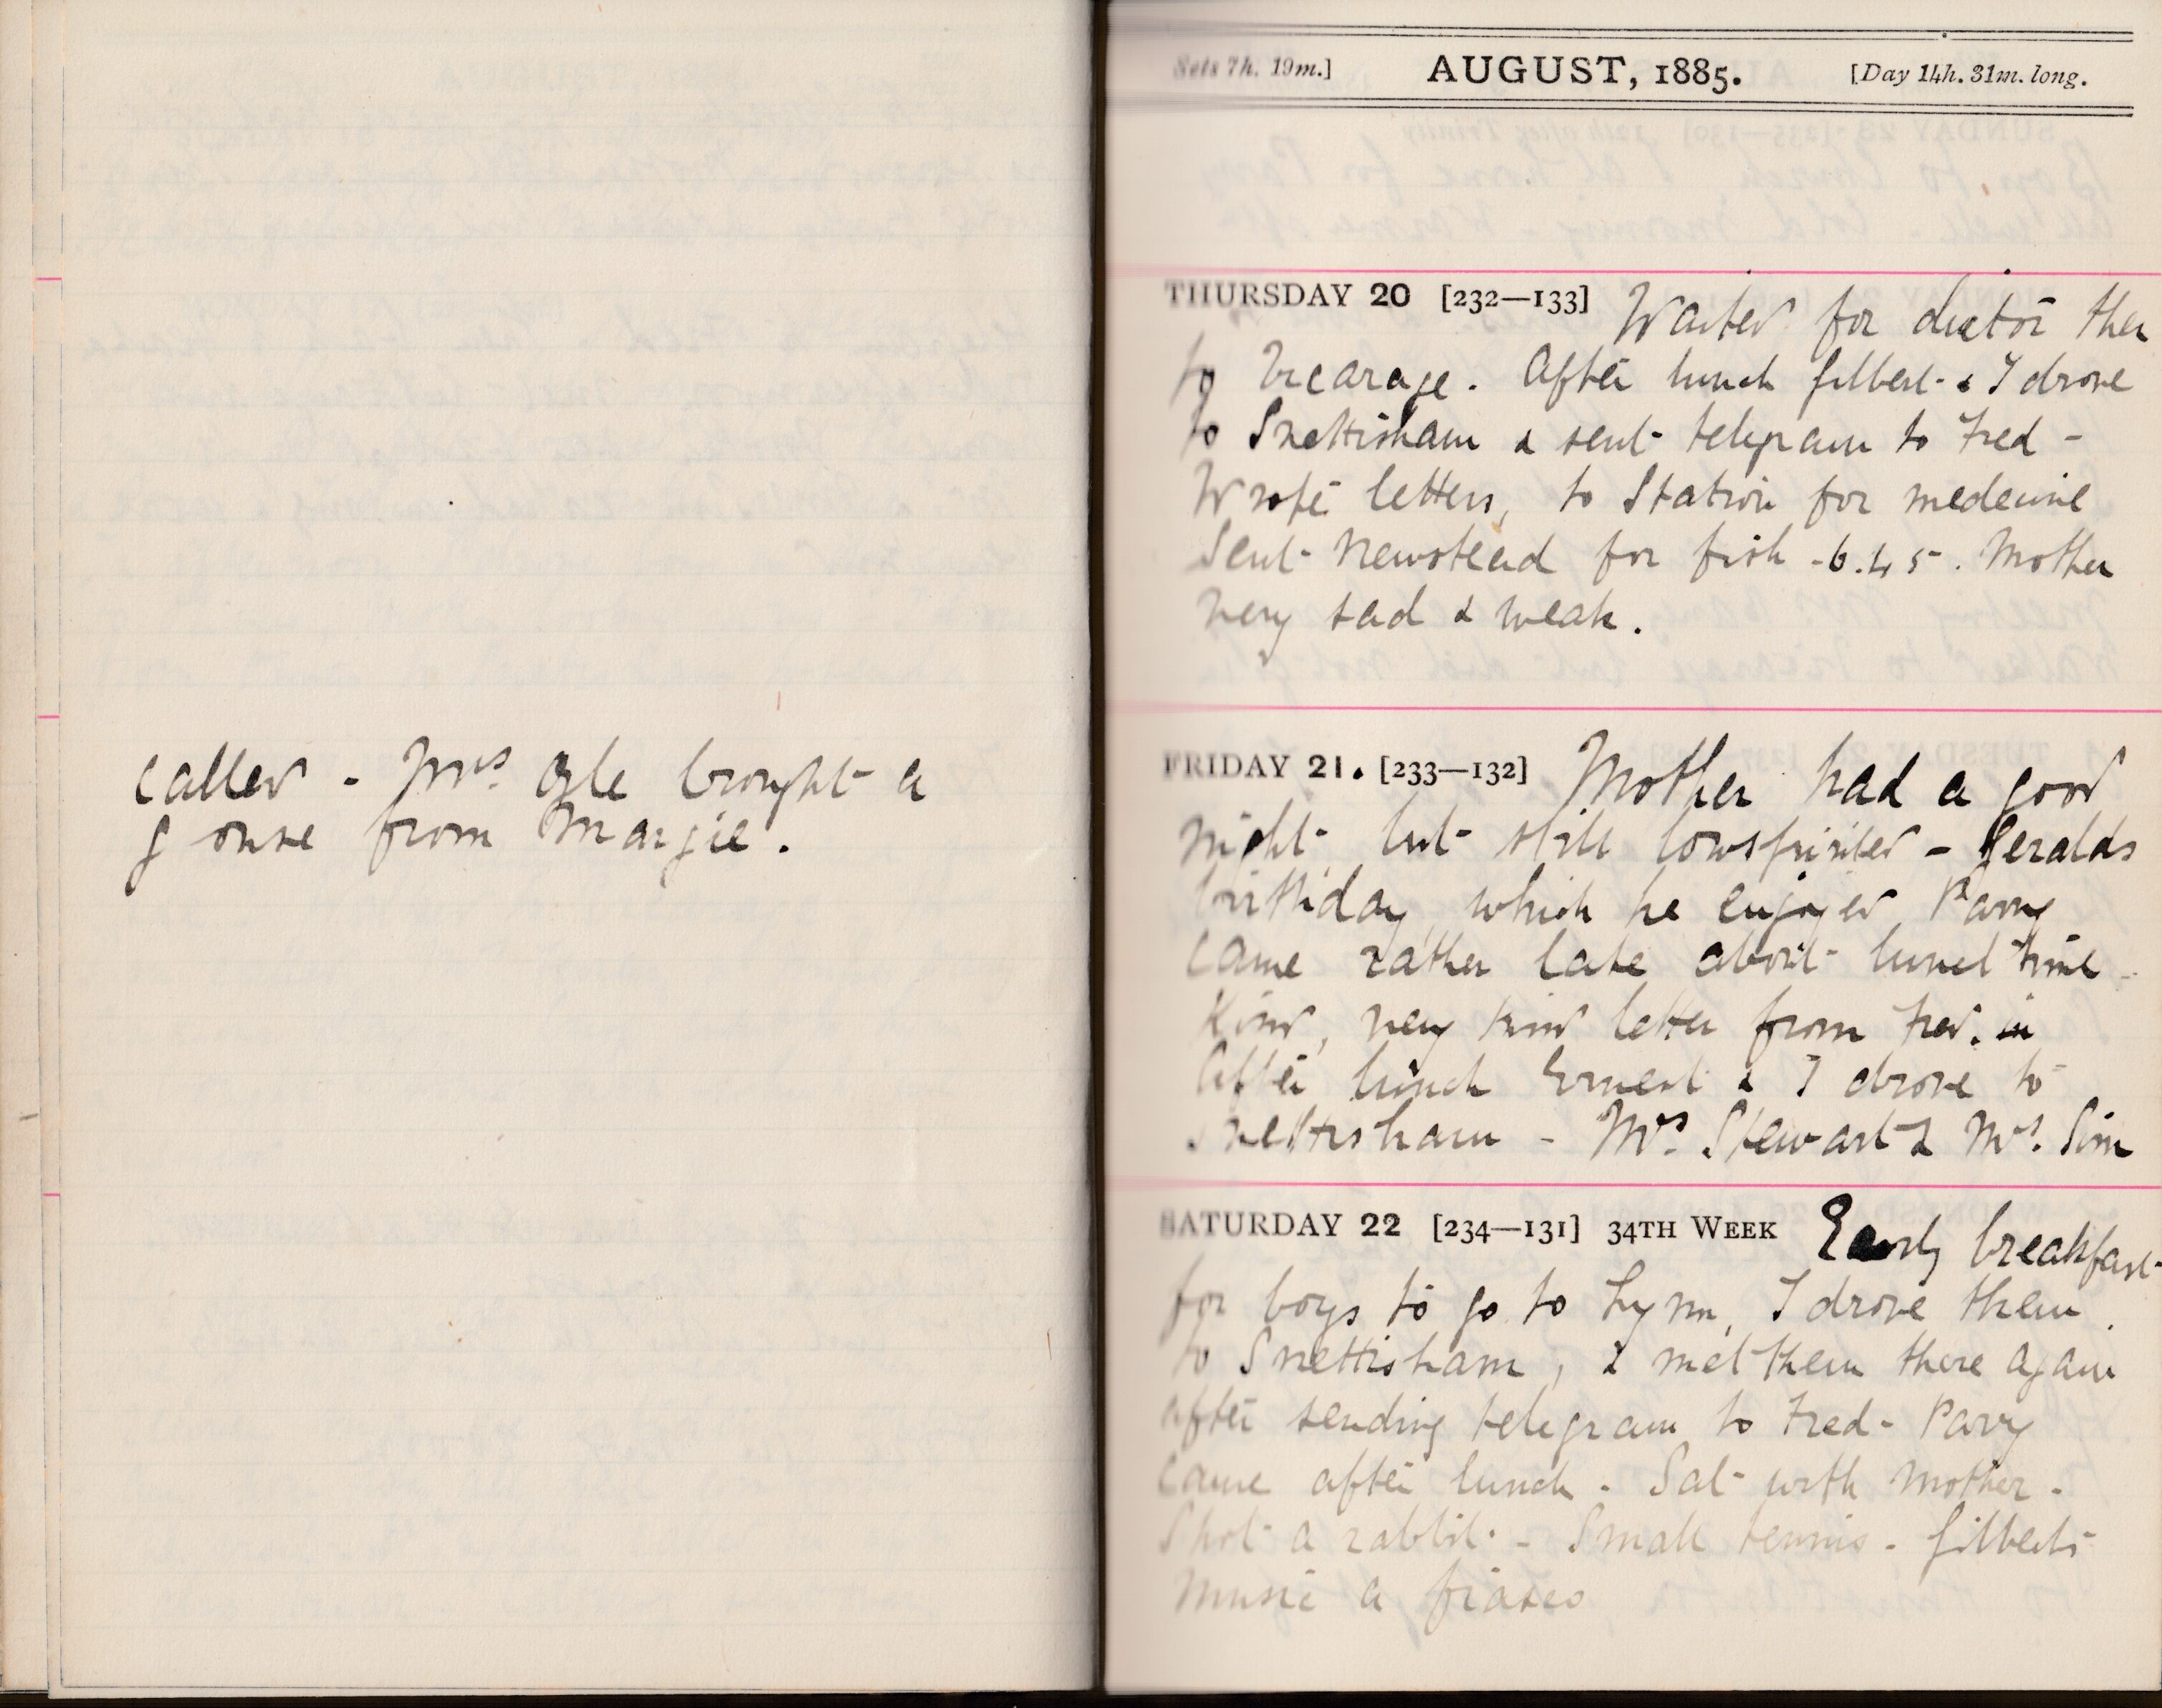 called - Mrs Ogle brought a
grouse from Margie.
Sets 7h. 19m.] AUGUST, 1885. [Day 14h. 31m. long.
THURSDAY 20 [232—133] Waited for doctor then
to Vicarage. After lunch Gilbert & I drove
to Snettisham & sent telegram to Fred -
Wrote letters, to Station for medecine
Sent Newstead for fish - 6.45. Mother
very sad & weak.
FRIDAY 21. [233—132] Mother had a good
night but still lowspirited - Geralds
birthday, which he enjoyed. Parry
came rather late about lunch time -
Kind, very kind letter from Fred. in
After lunch Ernest & I drove to
Snettisham - Mrs. Stewart & Mrs. Sim
SATURDAY 22 [234—131] 34TH WEEK Early breakfast
for boys to go to Lynn, I drove them
to Snettisham, & met them there again
after sending telegram to Fred - Parry
came after lunch. Sat with Mother.
Shot a rabbit. - Small tennis. Gilberts
music a fiasco